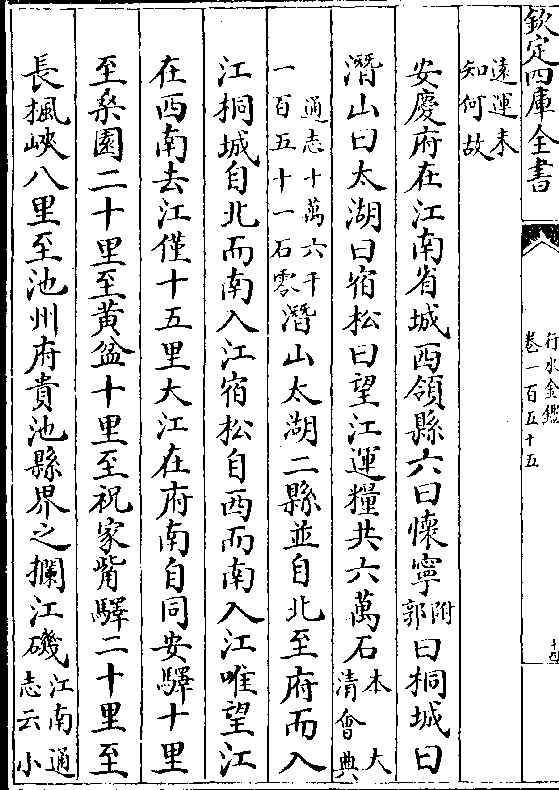 欽定四庫全書
行水金鑑
卷一百五十五
十四
遠運未
知何故
安慶府在江南省城西領縣六曰懷寧附郭曰桐城曰
潛山曰太湖曰宿松曰望江運糧共六萬石本大清會典
通志十萬六千一百五十一石零潛山太湖二縣並自北至府而入
江桐城自北而南入江宿松自西而南入江唯望江
在西南去江僅十五里大江在府南自同安驛十里
至桑園二十里至黃盆十里至祝家觜驛二十里至
長楓峽八里至池州府貴池縣界之攔江磯江南通志云小